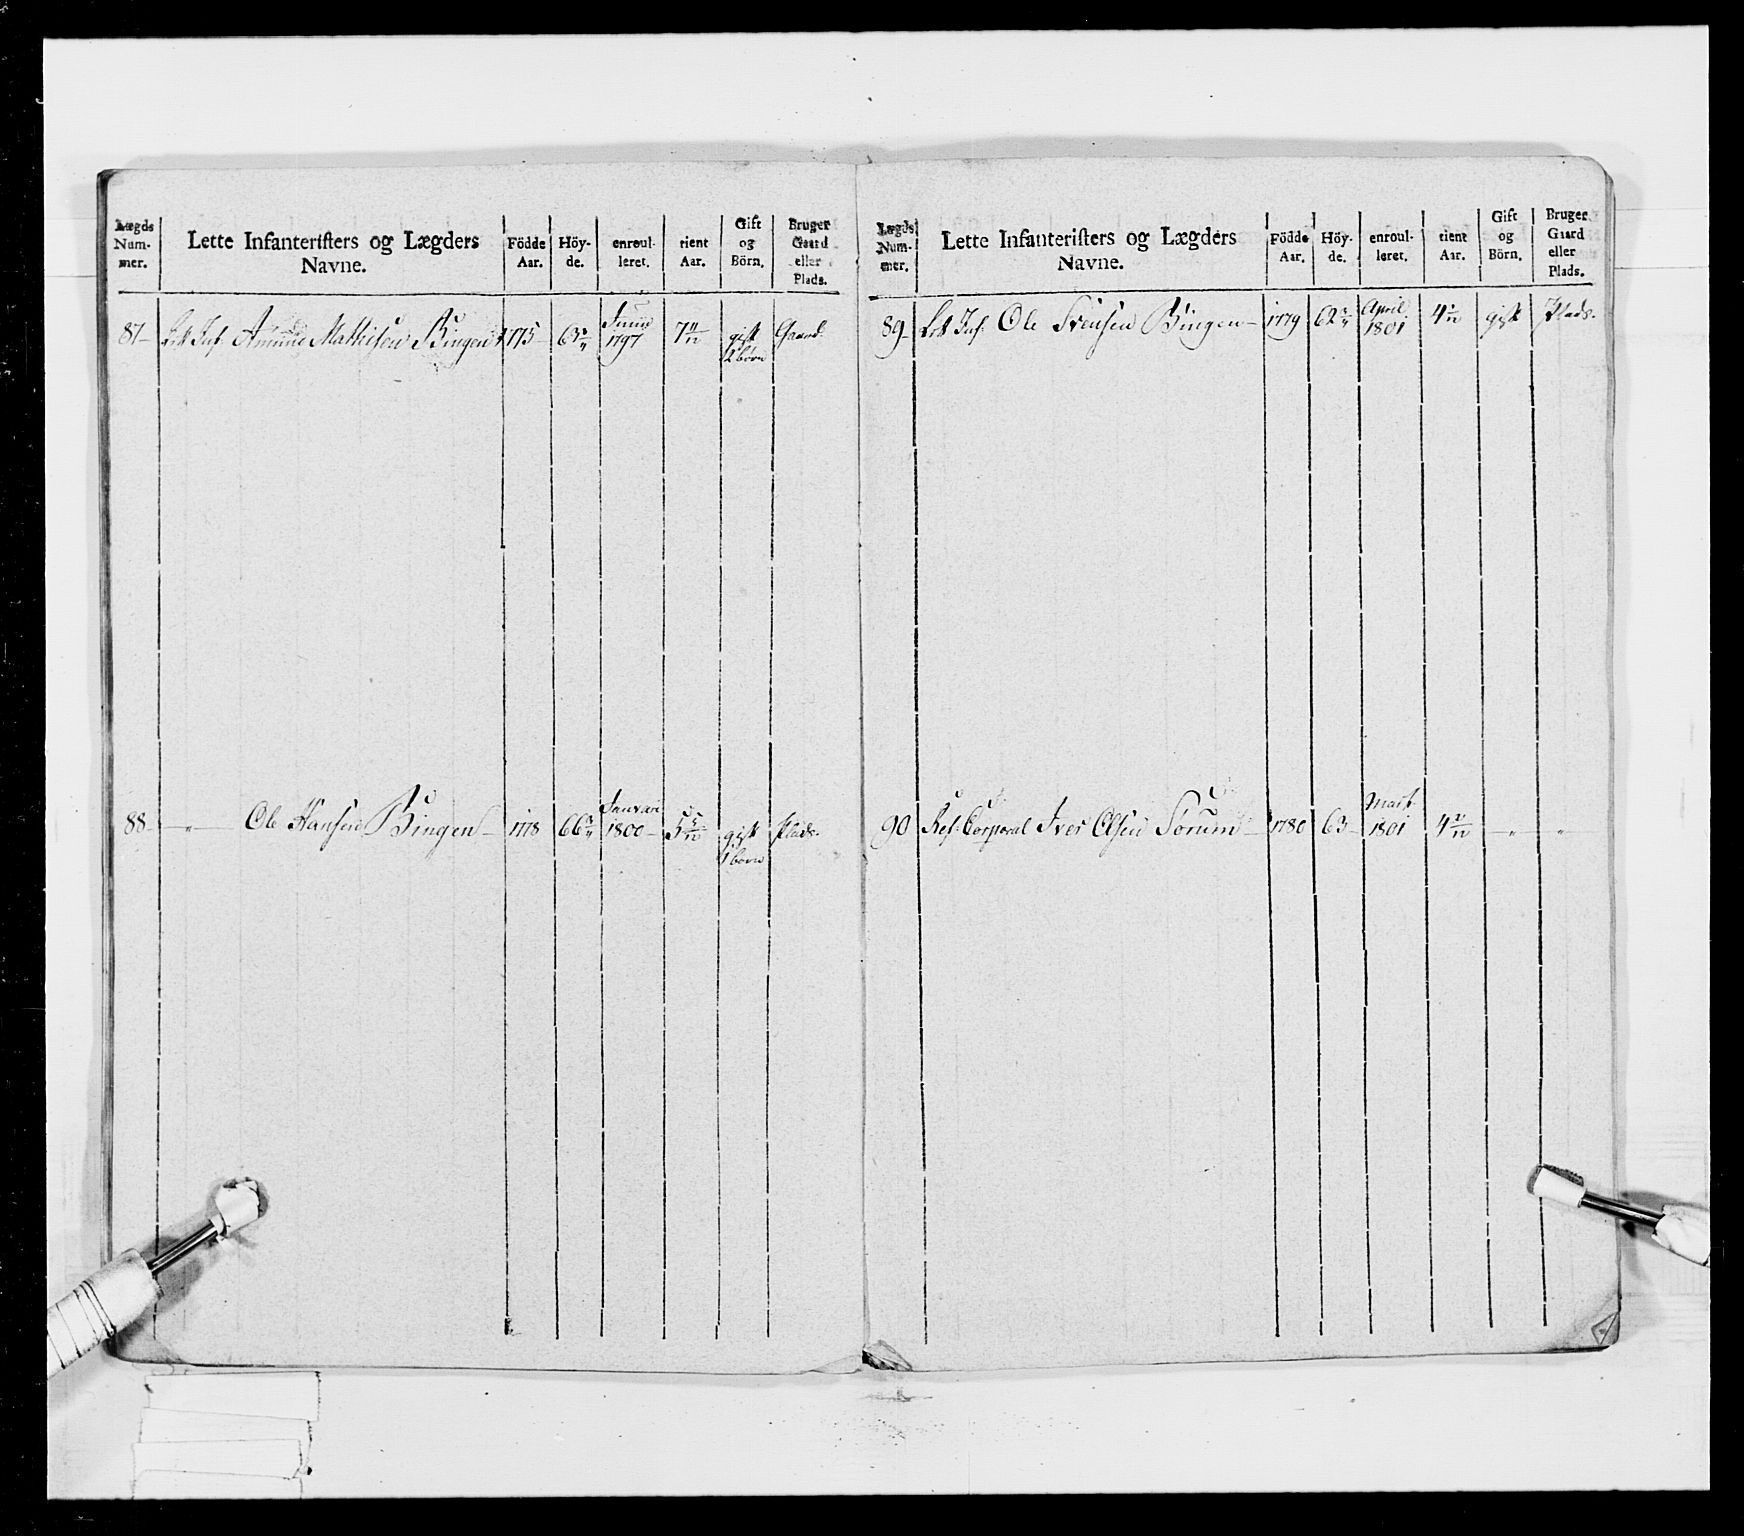 Lægds Num- mer. | Lette Infanterifters og Lægders Navne. | Födde Aar. | Höy- de. | enroul- leret. | tient Aar. | Gift og Börn. | Bruger Gaard eller Plads.
87 Let Inf: Amund Mathisen Bingen 1775 63 Juny 1797 7 11/12 gift 2 børn Gaard
88 — " — Ole Hansen Bingen 1778 66 Januari 1800 5 5/12 gift 1 børn Plads.
Lægds Num- mer. | Lette Infanterifters og Lægders Navne. | Födde Aar. | Höy- de. | enroul- leret. | tient Aar. | Gift og Börn. | Bruger Gaard eller Plads.
89 Let Inf: Ole Svensen Bingen 1779 62 April 1801 4 1/12 gift Plads.
90 Ref: Corporal Iver Olsen Sørum 1780 63 Mart 1801 4 2/12 — " — "